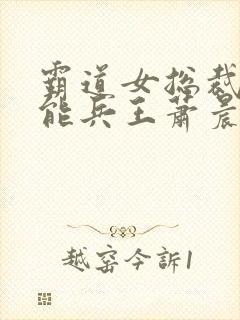 霸道女总裁
能兵王萧晨
越窑今訴1